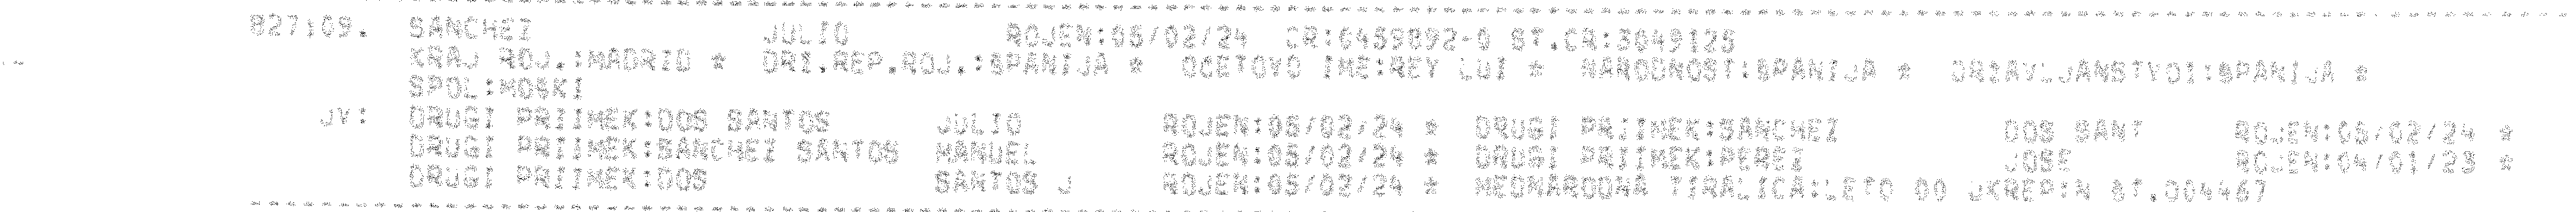 827:09. SANCHEI JULIO ROJEN:05/02/24 CR:6459892-0 ST.CR:3049125
KRAJ ROJ.:MADRID * DRI.REP.ROJ.:SPANIJA * OCETOVO IME:REY LUI * NARODNOST:SPANIJA * DRIAVLJANSTVOI:SPANIJA *
SPOL:MOSKI
JV: DRUGI PRIIMEK:DOS SANTOS JULIO ROJEN:05/02/24 * DRUGI PRIIMEK:SANCHEI DOS SANT ROJEN:05/02/24 *
DRUGI PRIIMEK:SANCHEI SANTOS MANUEL ROJEN:05/02/24 * DRUGI PRIIMEK:PEREI JOSE ROJEN:04/01/23 *
DRUGI PRIIMEK:DOS SANTOS J ROJEN:05/02/24 * MEDNARODNA TIRALICA:LETO 00 UKREP:N ST.004467